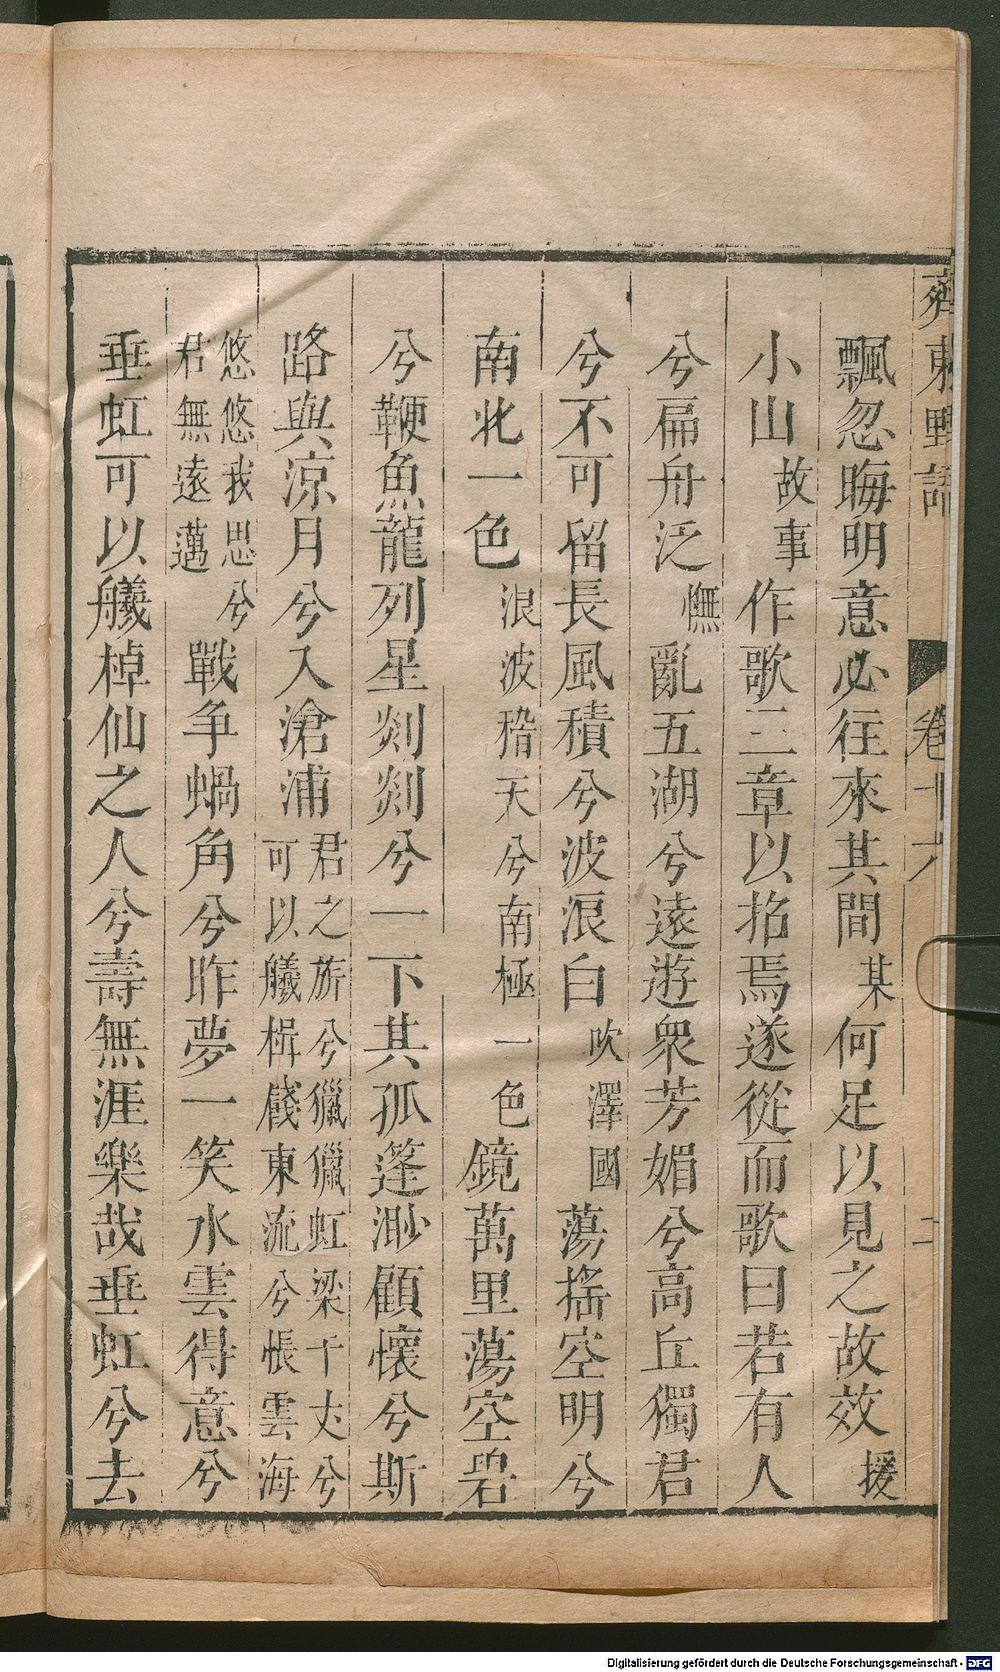 齊東野語 卷十六 二
飄忽晦明意必往來其間某何足以見之故效援
小山故事作歌三章以招焉遂從而歌曰若有人
兮扁舟泛憮亂五湖兮遠遊衆芳媚兮高丘獨君
兮不可留長風積兮波浪白吹澤國蕩搖空明兮
南北一色浪波稽天兮南極一色鏡萬里蕩空
兮鞭魚龍列星剡剡兮一下其孤篷渺顧懷兮斯
路與涼月兮入滄浦君之旂兮獵獵虹梁千丈兮
可以艤楫餞東流兮悵雲海
悠悠我思兮
君無遠邁戰争蝸角兮昨夢一笑水雲得意兮
垂虹可以艤棹仙之人兮壽無涯樂哉垂虹兮去
Digitalisierung gefördert durch die Deutsche Forschungsgemeinschaft - DFG